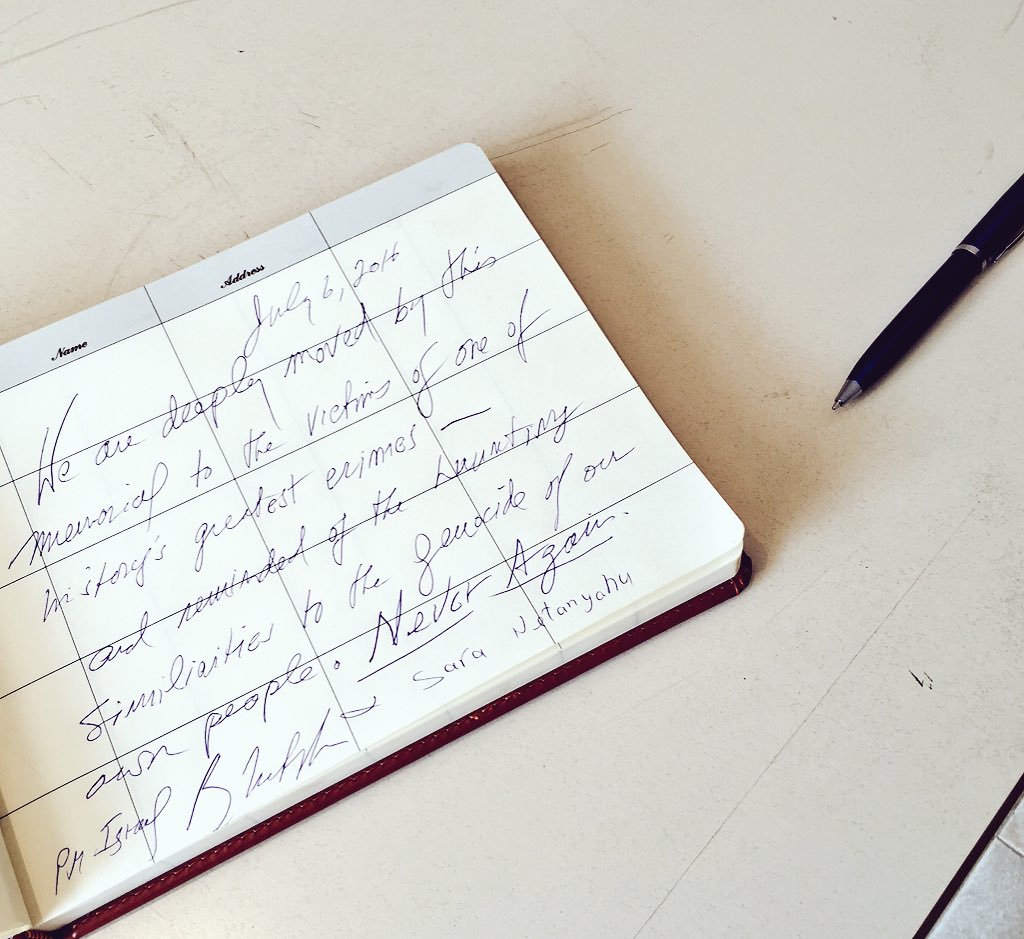 Name Address
July 6, 2016
We are deeply moved by this
memorial to the victims of one of
history's greatest crimes –
and reminded of the haunting
similiarities to the genocide of our
own people. Never Again.
PM Israel
Sara Netanyahu